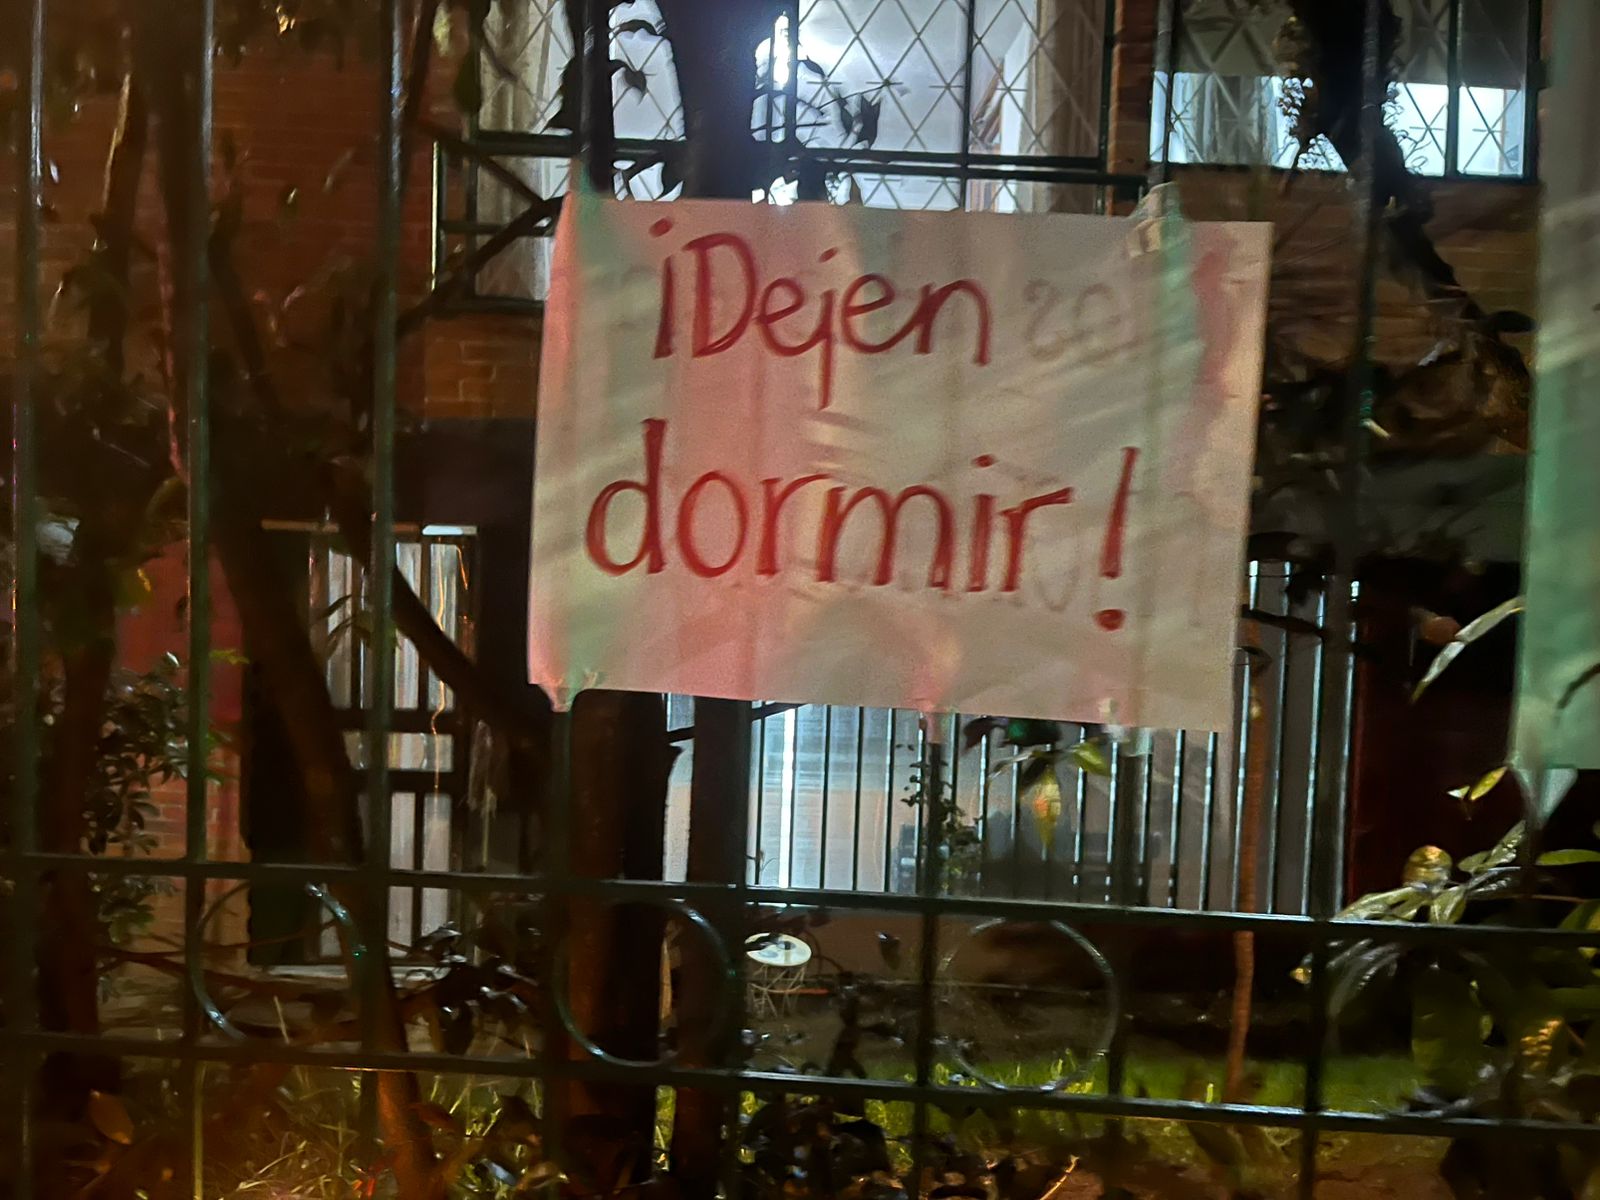 ¡Dejen
dormir!